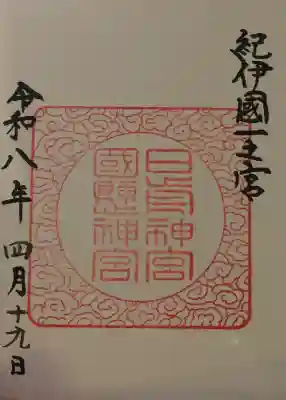 紀伊國一之宮
日前神宮
國懸神宮
令和八年 四月十九日